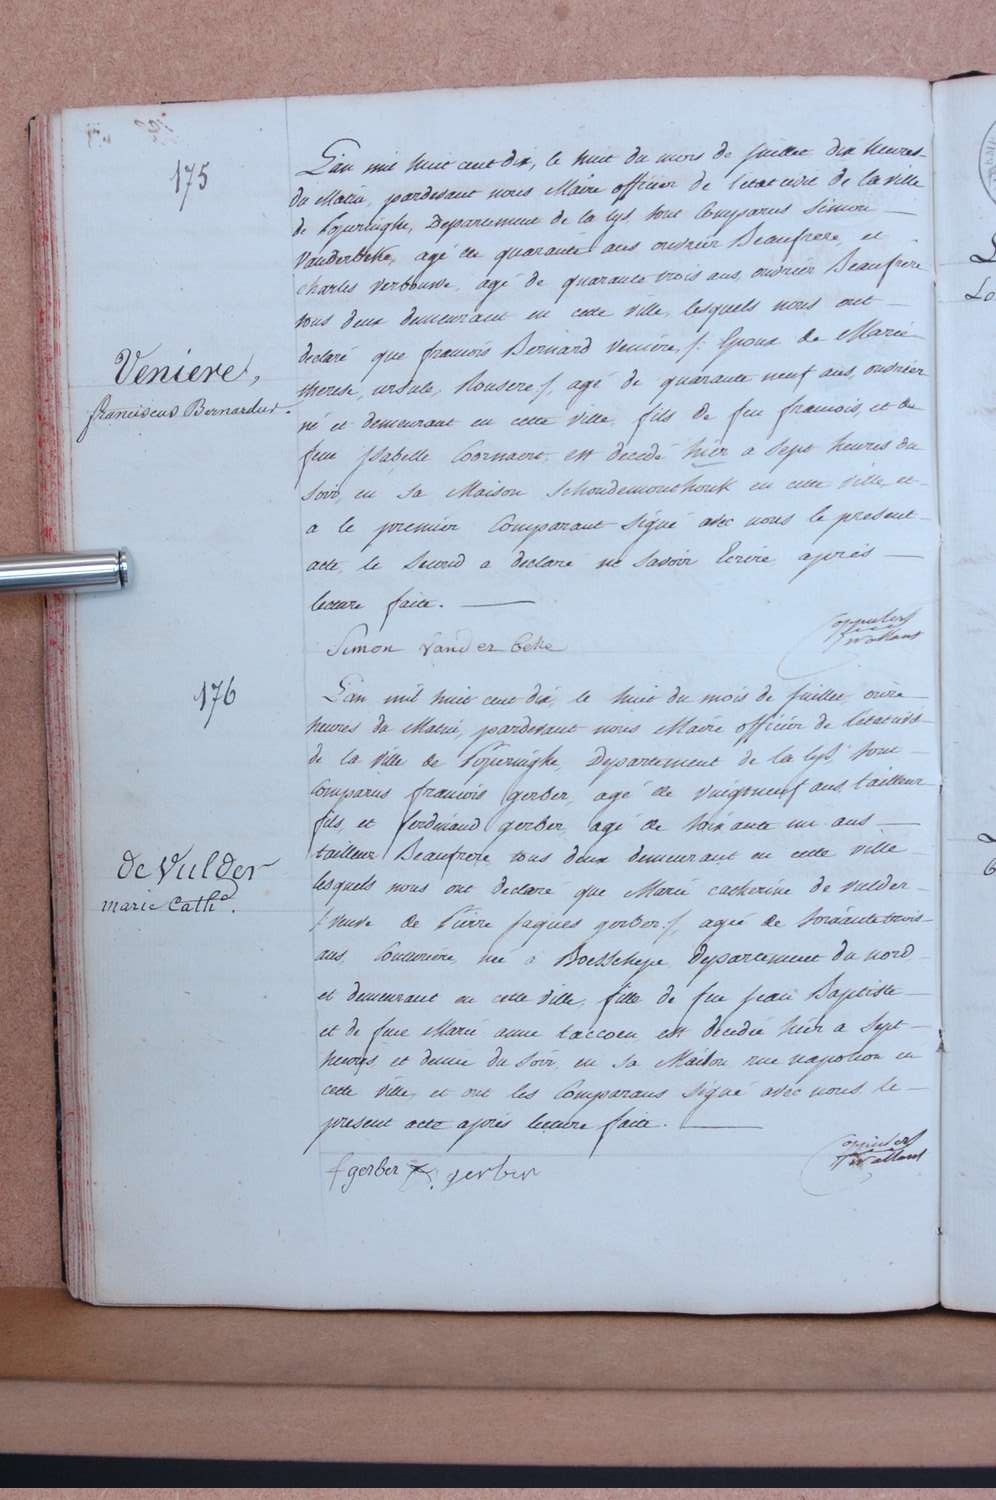 175
L'an mil huit cent dix, le huit du mois de juillet dix heures
du Matin, pardevant nous Maire officier de l'etat civil de la ville
de Poperinghe, Departement de la lys sont Comparus Simon
Vanderbeke, agé de quarante ans ouvrier Beaufrere, et
charles verbouwe, agé de quarante trois ans, ouvrier Beaufrere
tous deux demeurant en cette ville, lesquels nous ont
declaré que francois Bernard Veniere, /: Epoux de Marie
therese, ursule, Rousere :/, agé de quarante neuf ans, ouvrier
Veniere,
franciscus Bernardus.
né et demeurant en cette ville, fils de feu francois, et de
feue Isabelle Coornaert, est decedé hier a sept heures du
soir, en sa Maison Schoudemonthouk en cette ville, et
a le premier Comparant signé avec nous le present
acte, le second a declaré ne savoir Ecrire, après
lecture faite.
Simon Vanderbeke
176
L'an mil huit cent dix, le huit du mois de juillet, onze
heures du Matin, pardevant nous Maire officier de l'etat civil
de la ville de Poperinghe, Departement de la lys, sont
Comparus francois gerber, agé de vingt neuf ans tailleur
fils, et ferdinand gerber, agé de soixante un ans
tailleur Beaufrere tous deux demeurant en cette ville
lesquels nous ont declaré que Marie catherine de vulder
de Vulder
marie Cathe.
/: veuve de Pierre jaques gerber :/, agée de soixante trois
ans, Couturiere, née a Boesschepe, Departement du nord
et demeurant en cette ville, fille de feu jean Baptiste
et de feue Marie anne taccoen, est decedée hier a sept
heures et demie du soir, en sa Maison rue napoleon en
cette ville, et ont les Comparans signé avec nous le
present acte après lecture faite.
f gerber f. gerber